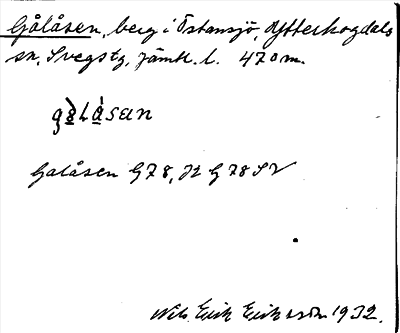 Gålåsen, berg i Östansjö, Ytterhogdals
sn, Svegs tg, Jämtl. l. 470 m.
gålåsen
Galåsen G78, J2 G78 SV
Nils Erik Eriksson 1932.